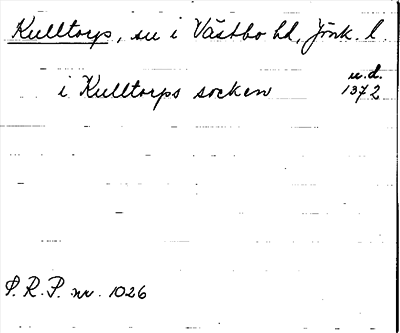 Kulltorp, sn i Västbo hd, Jönk. l.
u.d.
i Kulltorps socken 1372
S.R.P. nr. 1026